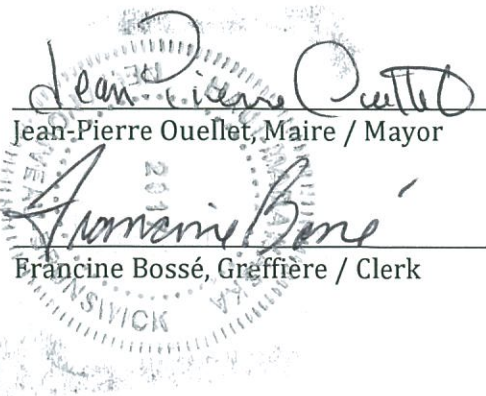 Jean-Pierre Ouellet
Jean-Pierre Ouellet, Maire / Mayor
Francine Bossé
Francine Bossé, Greffière / Clerk
NSWICK